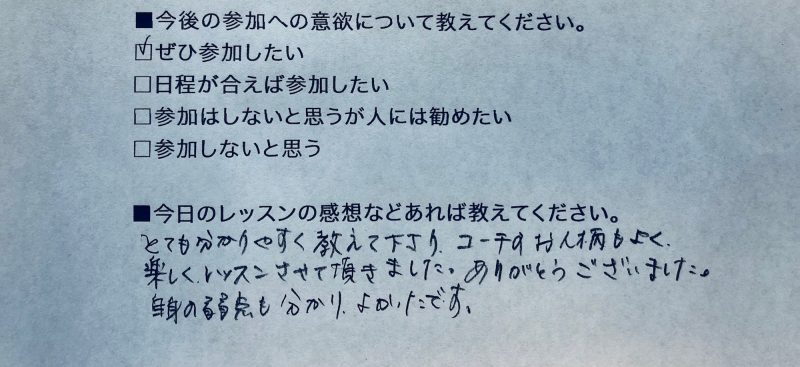 ■今後の参加への意欲について教えてください。
☑ぜひ参加したい
□日程が合えば参加したい
□参加はしないと思うが人には勧めたい
□参加しないと思う
■今日のレッスンの感想などあれば教えてください。
とても分かりやすく教えて下さり、コーチのお人柄もよく、
楽しくレッスンさせて頂きました。ありがとうございました。
自身の弱点も分かり、よかったです。